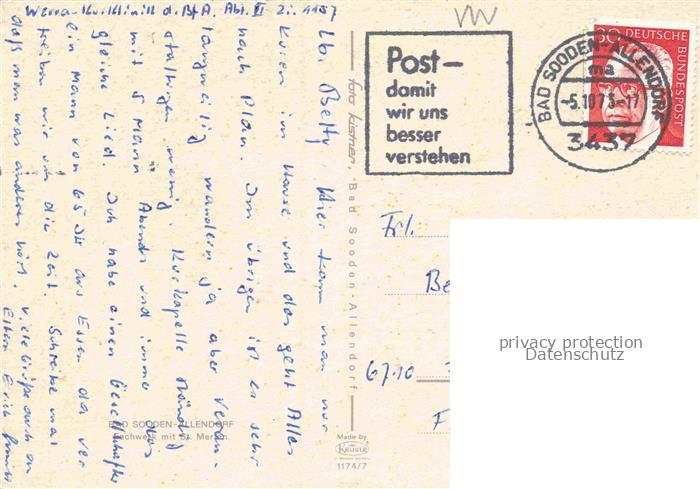 Werra-Kurklinik d. BfA, Abt. II Zi. 1157
Lbi. Betty, Hier kann man nur
kuren im Hause und das geht Alles
nach Plan. Im übrigen ist es sehr
langweilig wandern ja aber veran-
staltungen wenig. Kurkapelle ständig
mit 5 Mann Abends und immer das
gleiche Lied. Ich habe einen Gesellschafter
ein Mann von 65 Jr aus Essen da ver
treiben wir uns die Zeit. Schreibe mal
daß man was anderes hört. Viele Grüße auch an
Eltern Erich
BAD SOODEN-ALLENDORF
Fachwerk mit St. Marien
foto kistner, Bad Sooden-Allendorf
Made by
KRÜGER
1174/7
Post–
damit
wir uns
besser
verstehen
BAD SOODEN-ALLENDORF
ma
-5.10 73-17
3437
30 DEUTSCHE
BUNDESPOST
Frl.
Be
6710
F
privacy protection
Datenschutz